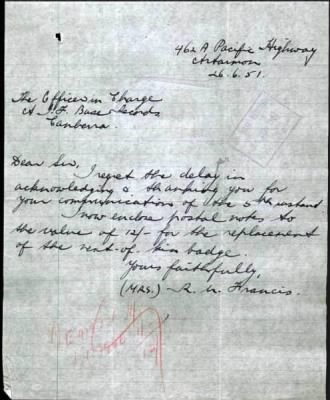 462A Pacific Highway
Artarmon
26.6.51.
The Officer in Charge
A.I.F. Base Records
Canberra.
Dear Sir,
I regret the delay in
acknowledging & thanking you for
your communications of the 5th instant
I now enclose postal notes to
the value of 12/- for the replacement
of the next-of-kin badge.
Yours faithfully,
(MRS.) R. M. Francis.